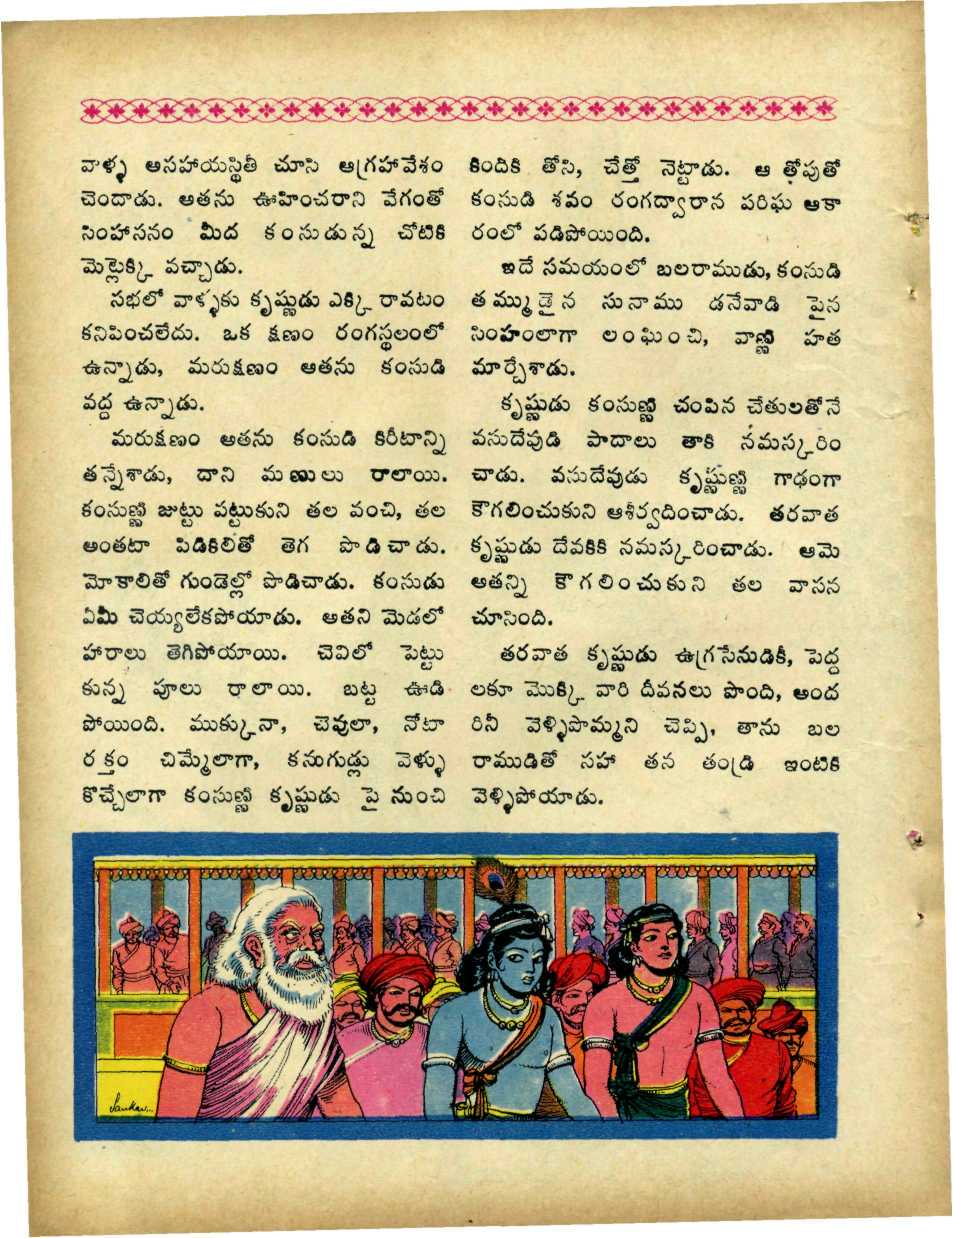 వాళ్ళ అసహాయస్థితీ చూసి ఆగ్రహావేశం
చెందాడు. అతను ఊహించరాని వేగంతో
సింహాసనం మీద కంసుడున్న చోటికి
మెట్లెక్కి వచ్చాడు.
సభలో వాళ్ళకు కృష్ణుడు ఎక్కి రావటం
కనిపించలేదు. ఒక క్షణం రంగస్థలంలో
ఉన్నాడు, మరుక్షణం అతను కంసుడి
వద్ద ఉన్నాడు.
మరుక్షణం అతను కంసుడి కిరీటాన్ని
తన్నేశాడు, దాని మణులు రాలాయి.
కంసుణ్ణి జుట్టు పట్టుకుని తల వంచి, తల
అంతటా పిడికిలితో తెగ పొడిచాడు.
మోకాలితో గుండెల్లో పొడిచాడు. కంసుడు
ఏమీ చెయ్యలేకపోయాడు. అతని మెడలో
హారాలు తెగిపోయాయి. చెవిలో పెట్టు
కున్న పూలు రాలాయి. బట్ట ఊడి
పోయింది. ముక్కునా, చెవులా, నోటా
రక్తం చిమ్మేలాగా, కనుగుడ్లు వెళ్ళు
కొచ్చేలాగా కంసుణ్ణి కృష్ణుడు పై నుంచి
కిందికి తోసి, చేత్తో నెట్టాడు. ఆ తోపుతో
కంసుడి శవం రంగద్వారాన పరిఘ ఆకా
రంలో పడిపోయింది.
ఇదే సమయంలో బలరాముడు, కంసుడి
తమ్ముడైన సునాము డనేవాడి పైన
సింహంలాగా లంఘించి, వాణ్ణి హత
మార్చేశాడు.
కృష్ణుడు కంసుణ్ణి చంపిన చేతులతోనే
వసుదేవుడి పాదాలు తాకి నమస్కరిం
చాడు. వసుదేవుడు కృష్ణుణ్ణి గాఢంగా
కౌగలించుకుని ఆశీర్వదించాడు. తరవాత
కృష్ణుడు దేవకికి నమస్కరించాడు. ఆమె
అతన్ని కౌగలించుకుని తల వాసన
చూసింది.
తరవాత కృష్ణుడు ఉగ్రసేనుడికీ, పెద్ద
లకూ మొక్కి వారి దీవనలు పొంది, అంద
రినీ వెళ్ళిపొమ్మని చెప్పి, తాను బల
రాముడితో సహా తన తండ్రి ఇంటికి
వెళ్ళిపోయాడు.
Sankar...